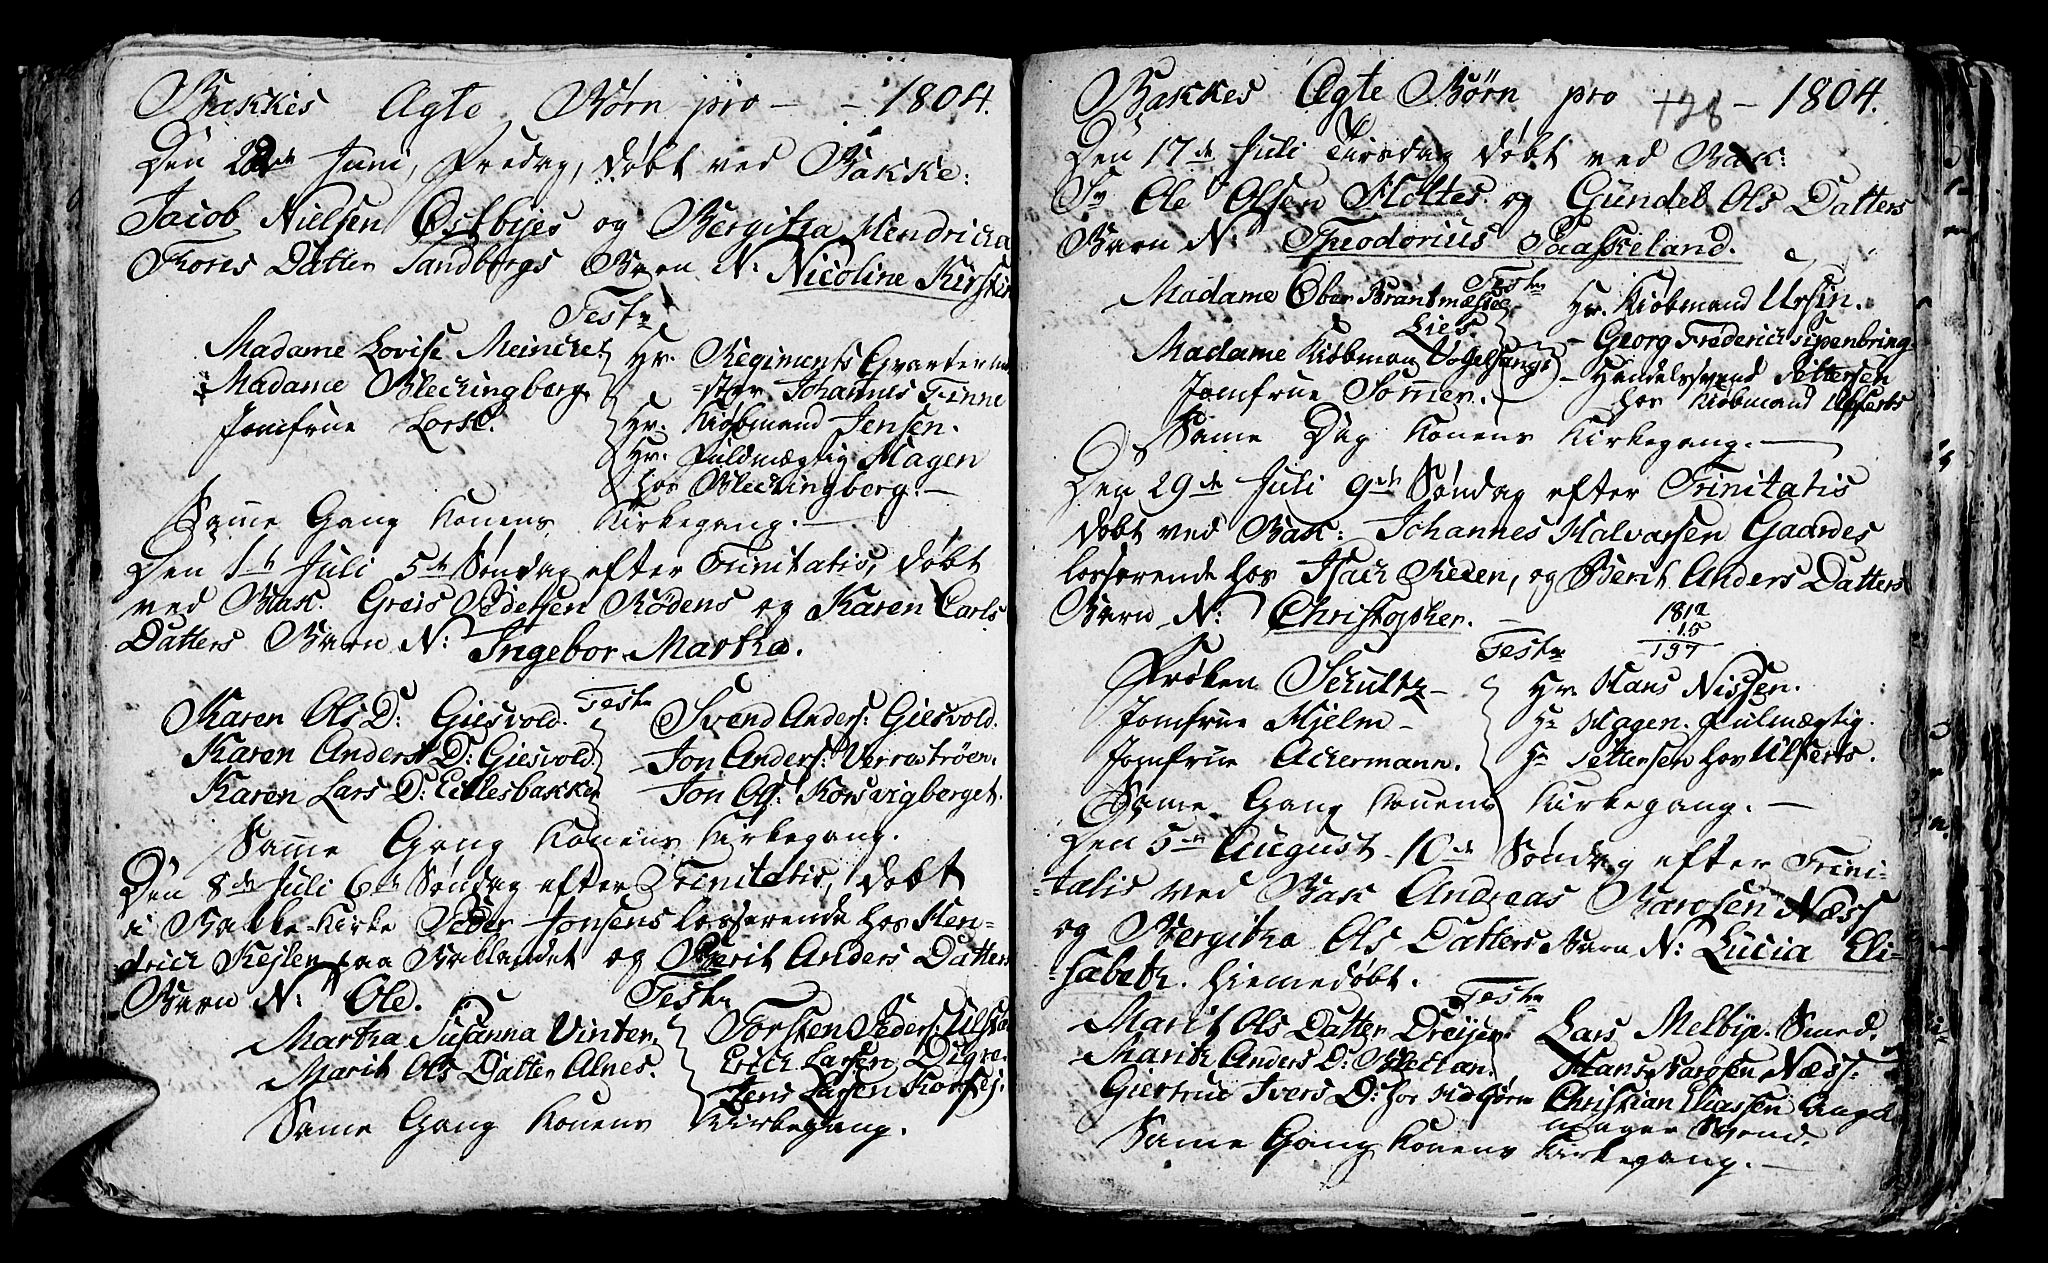 Bakkes Ægte Børn pro - - 1804.
Den 22de Juni, Fredag, døbt ved Bakke:
Jacob Nielsen Østbyes og Bergitha Hendricha
Thores Datter Sandbergs Barn N: Nicoline Kirsten
Test:
Madame Lovise Meincke
Madame Bleckingberg
Jomfrue Lorck.
Hr. Regiments Qvarterme
-ster Johannes Finne
Hr. Kiøbmand Jensen.
Hr. Fuldmægtig Hagen
hos Bleckingberg. -
Samme Gang Konens Kirkegang. -
Den 1te Juli 5te Søndag efter Trinitatis, døbt
ved Bak. Greis Pedersen Rødens og Karen Carls
Datters Barn N: Ingebor Martha.
Test:
Karen Ols D: Giesvold.
Karen Anders D: Giesvold.
Karen Lars D: Eillesbakken
Svend Anders: Giesvold.
Jon Anders: Verrostrøen.
Jon Ols: Korsvigberget.
Samme Gang Konens Kirkegang.
Den 8de Juli 6te Søndag efter Trinitatis, døbt
i Bakke-Kirke Peder Jonsens losserende hos Hen-
drich Kejlen paa Baklandet og Berit Anders Datters
Barn N: Ole. Test:
Martha Susanna Vinter
Marit Ols Datter Alnes.
Torsten Peders:
Erich Larsen Dugre
Jens Larsen
Same Gang Konens Kirkegang.
Bakkes Ægte Børn pro 128 - 1804.
Den 17de Juli Tirsdag døbt ved Bak:
Sr Ole Olsen Holtes og Gundel Ols Datters
Barn N: Theodorius Paaskeland.
Test:
Madame Ober Brantmester
Lies
Madame Kiøbman Vogelsangs
Jomfrue Sommer.
Hr. Kiøbmand Ursin.
- Georg Frederich Sipenbring
- Handelssvend Pettersen
hos Kiøbmand Ulferts
Same Dag Konens Kirkegang. -
Den 29de Juli 9de Søndag efter Trinitatis
døbt ved Bak: Johannes Halvarsen Gaardes
losserende hos Isach Reeen, og Berit Anders Datters
Barn N: Christopher. -
1812
15
197
Test:
Frøken Schultz -
Jomfrue Hjelm -
Jomfrue Ackermann.
Hr. Hans Nissen.
Hr Hagen. Fulmægtig.
Hr Pettersen hos Ulferts.
Same Gang Konens Kirkegang. -
Den 5te August 10de Søndag efter Trini-
-tatis ved Bak Andreas Barosen Næss
og Bergitha Ols Datters Barn N: Lucia Eli-
-sabeth. hiemedøbt.
Test:
Marit Ols Datter Dreijer
Marith Anders D: Mectan.
Giertrue Ivers D: hos
Lars Melbye. Smed.
Hans Barosen Næss.
Christian Eliassen
mager Svend.
Same Gang Konens Kirkegang. -